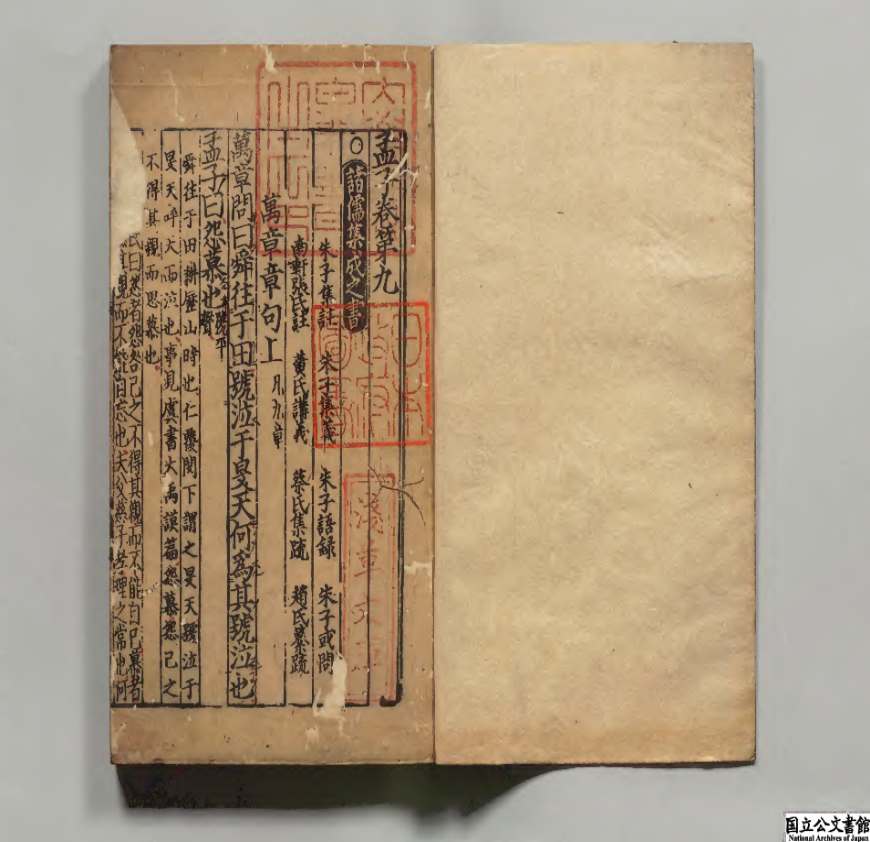 孟子卷第九
○諸儒集成之書
朱子集註 朱子集義 朱子語録 朱子或問
南軒張氏註 黄氏講義 蔡氏集疏 趙氏纂疏
萬章章句上 凡九章
萬章問曰舜往于田號泣于旻天何爲其號泣也
孟子曰怨慕也號平聲
舜往于田耕歷山時也仁覆閔下謂之旻天號泣于
旻天呼天而泣也事見虞書大禹謨篇怨慕怨己之
不得其親而思慕也
氏曰怨者怨咎己之不得其親而不能自已慕者
親而不能自忘也夫
淺草文庫
日本政府圖書
国立公文書館
National Archives of Japan